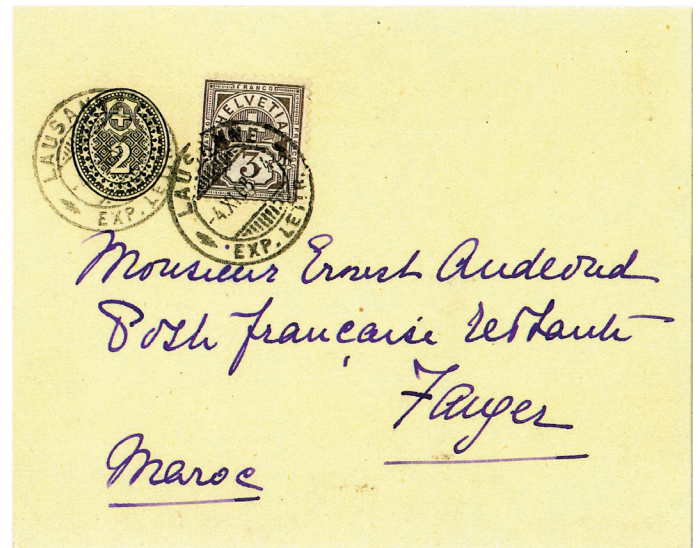 FRANCO
HELVETIA
2
3
LAUSANNE
EXP. LETTR.
Monsieur Ernest Audeoud
Poste française restante
Tanger
Maroc